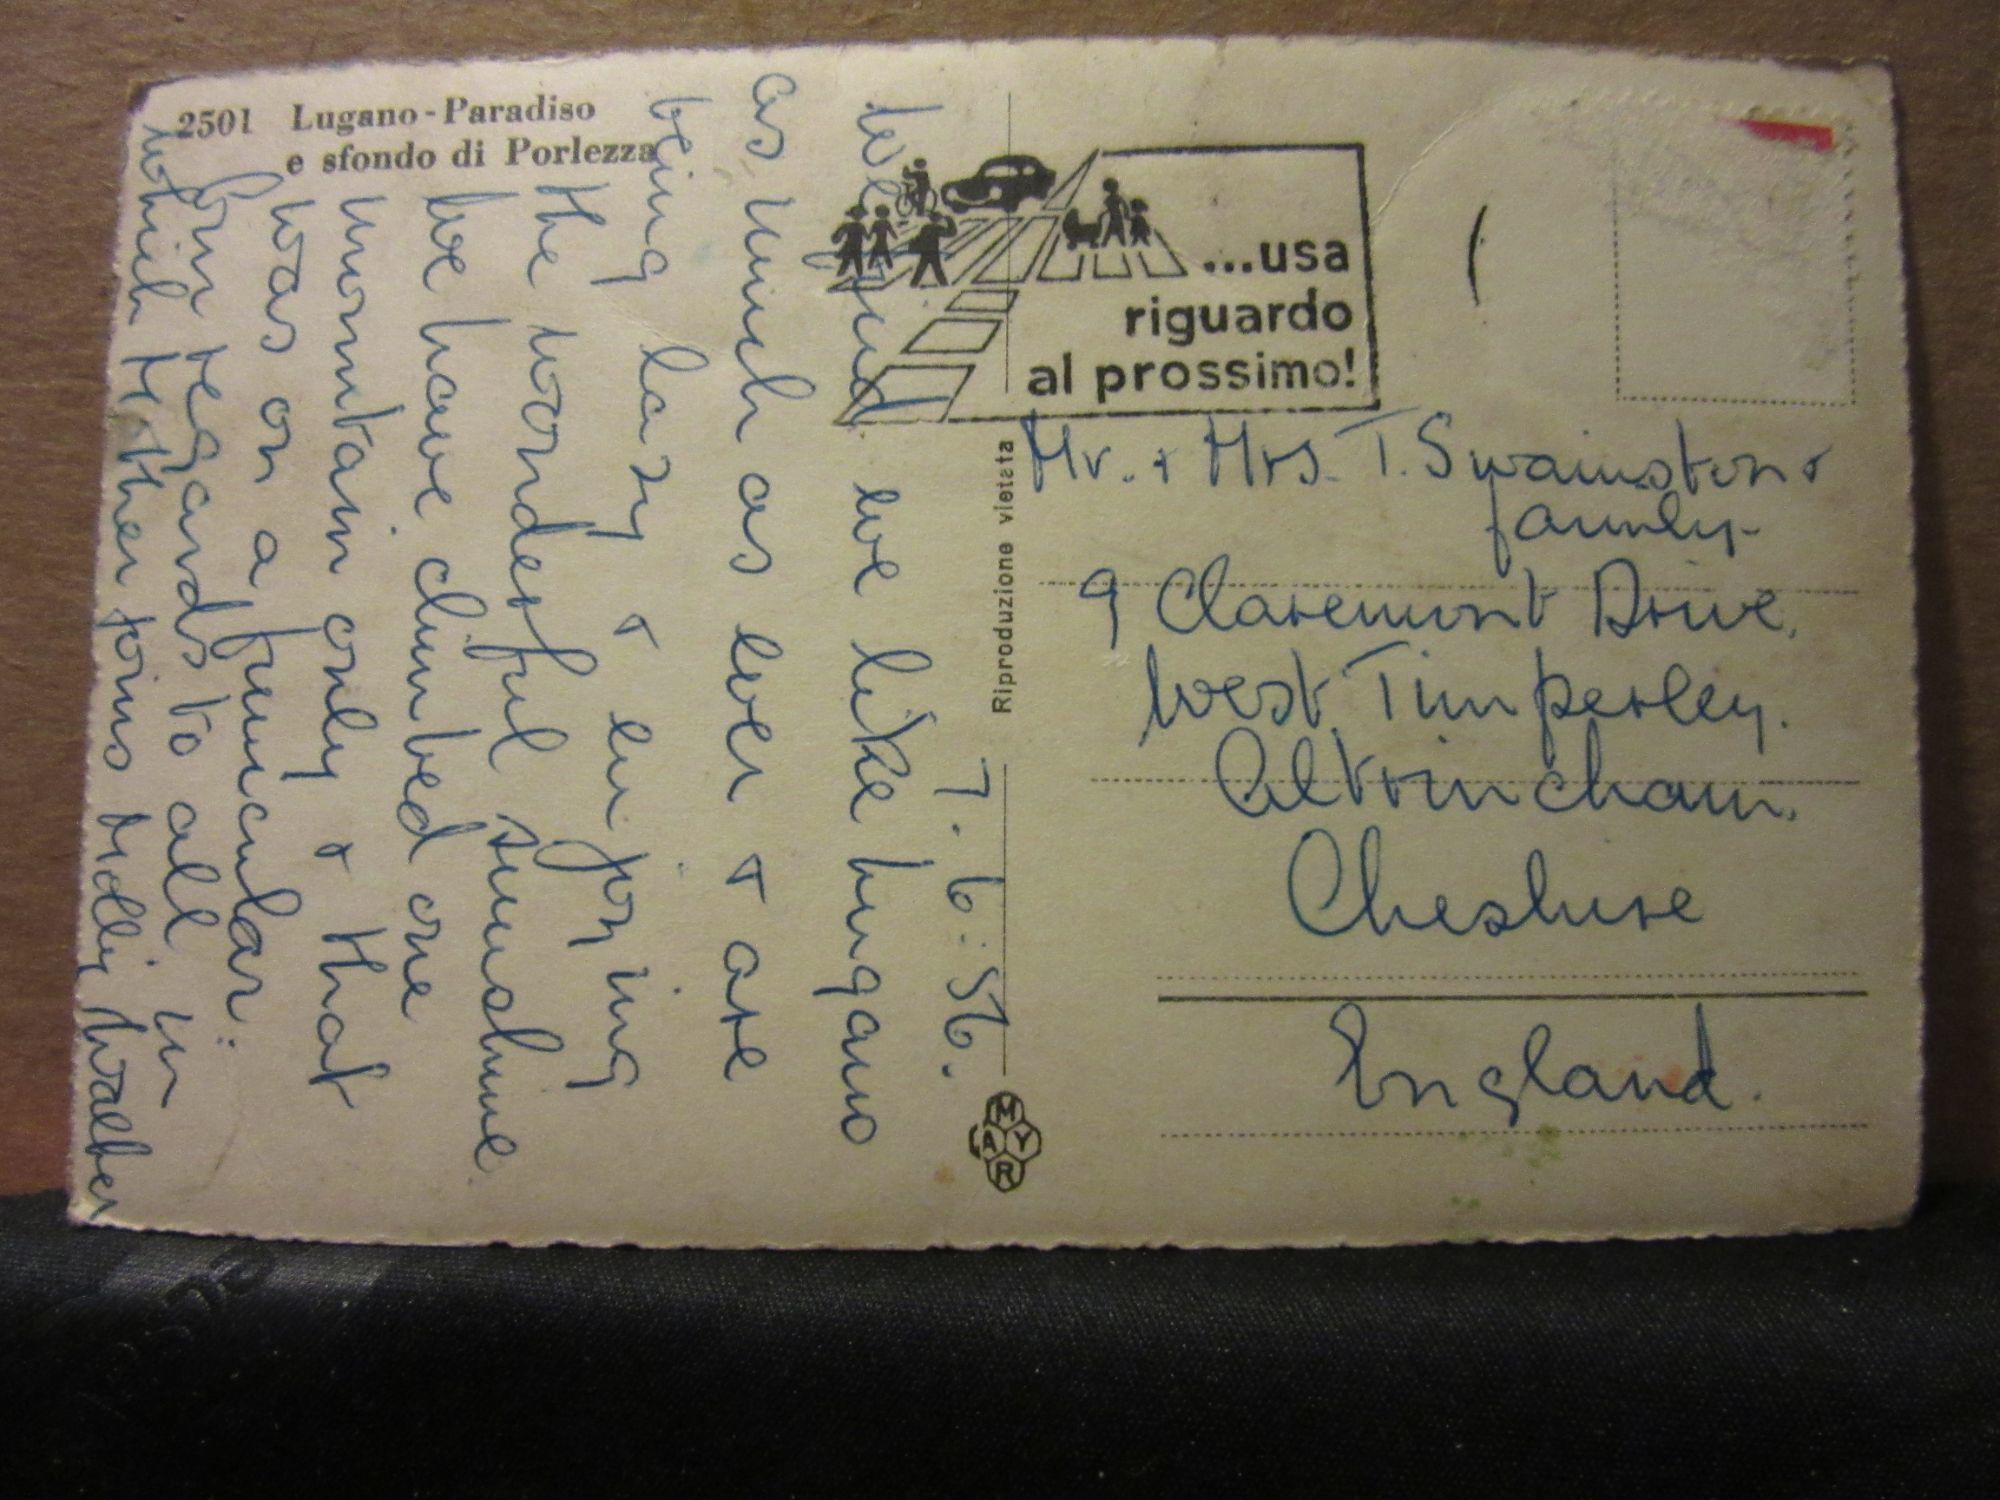 2501 Lugano-Paradiso
e sfondo di Porlezza
7.6.56.
We find we like Lugano
as much as ever & are
being lazy & enjoying
the wonderful sunshine
We have climbed one
mountain only & that
was on a funicular.
Our regards to all in
which Mother joins Molly Walker
...usa
riguardo
al prossimo!
Riproduzione vietata
MAYR
Mr. & Mrs. T. Swainston &
family.
9 Claremont Drive,
West Timperley.
Altrincham.
Cheshire
England.